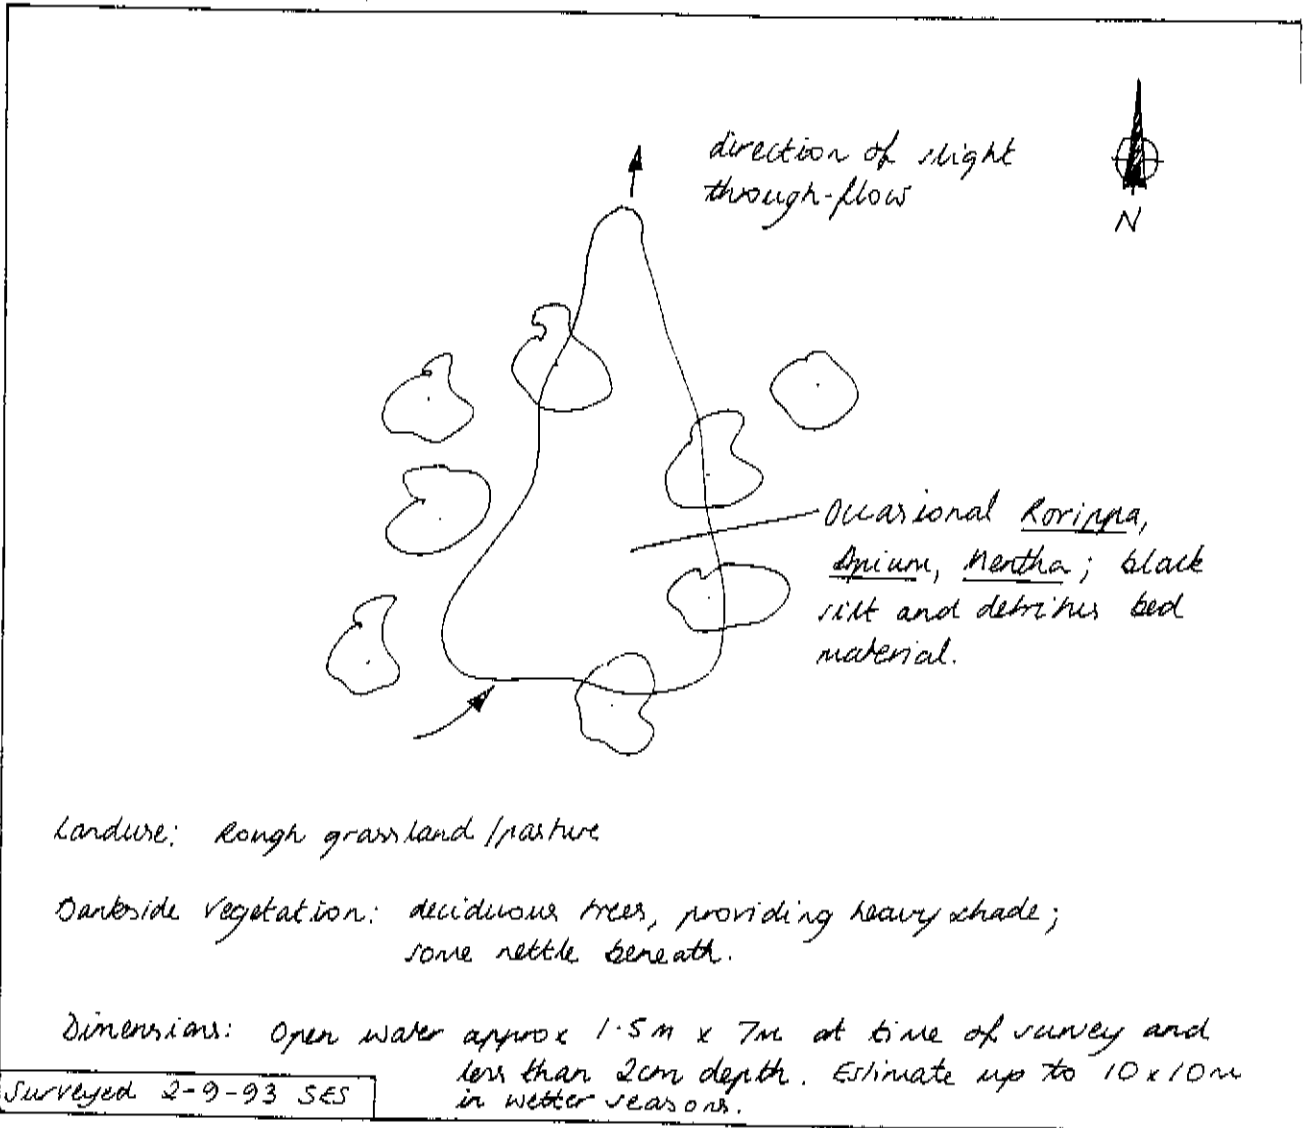 direction of slight
through-flow
N
Occasional Rorippa,
Apium, Mentha; black
silt and detritus bed
material.
Landuse: Rough grassland/pasture
Bankside vegetation: deciduous trees, providing heavy shade;
some nettle beneath.
Dimensions: Open water approx 1.5m x 7m at time of survey and
less than 2cm depth. Estimate up to 10x10m
in wetter seasons.
Surveyed 2-9-93 SES